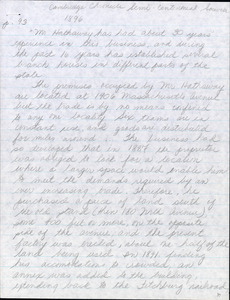 Cambridge Chronicle Semi Centennial Souvenir
1896
p. 93
"Mr. Hathaway has had about 35 years
experience in this business, and during
the past 10 years has established several
branch houses in different parts of the
state.
The premises occupied by Mr. Hathaway
are located at 1906 Massachusetts Avenue
but the trade is by no means confined
to any one locality. Six teams are in
constant use, and goods are distributed
for miles around. The business had
so enlarged that in 1887 the proprietor
was obliged to look for a location
where a larger space would enable him
to meet the demands required by an
ever increasing trade. Therefore he
purchased a piece of land south of
the old stand (now 1811 Mass Avenue)
200 feet or more, on the opposite
side of the avenue, and the present
factory was erected, about one half of the
land being used. In 1891, finding
his accommodation to be limited, an
annex was added to the building
extending back to the Fitchburg railroad